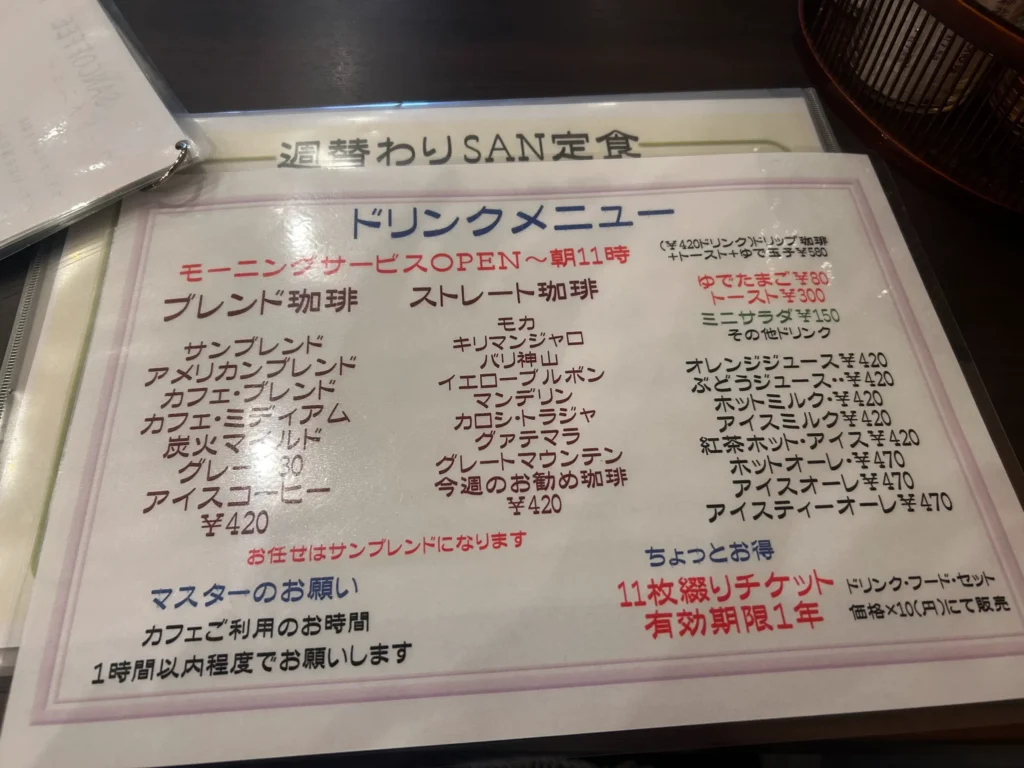 週替わりSAN定食
ドリンクメニュー
モーニングサービスOPEN～朝11時
ブレンド珈琲
サンブレンド
アメリカンブレンド
カフェ・ブレンド
カフェ・ミディアム
炭火マイルド
グレー 30
アイスコーヒー
¥420
ストレート珈琲
モカ
キリマンジャロ
バリ神山
イエローブルボン
マンデリン
カロシ・トラジャ
グァテマラ
グレートマウンテン
今週のお勧め珈琲
¥420
(¥420ドリンク)ドリップ珈琲
+トースト+ゆで玉子¥580
ゆでたまご¥80
トースト¥300
ミニサラダ¥150
その他ドリンク
オレンジジュース¥420
ぶどうジュース・・¥420
ホットミルク・¥420
アイスミルク¥420
紅茶ホット・アイス¥420
ホットオーレ・¥470
アイスオーレ¥470
アイスティーオーレ¥470
お任せはサンブレンドになります
マスターのお願い
カフェご利用のお時間
1時間以内程度でお願いします
ちょっとお得
11枚綴りチケット
有効期限1年
ドリンク・フード・セット
価格×10(円)にて販売